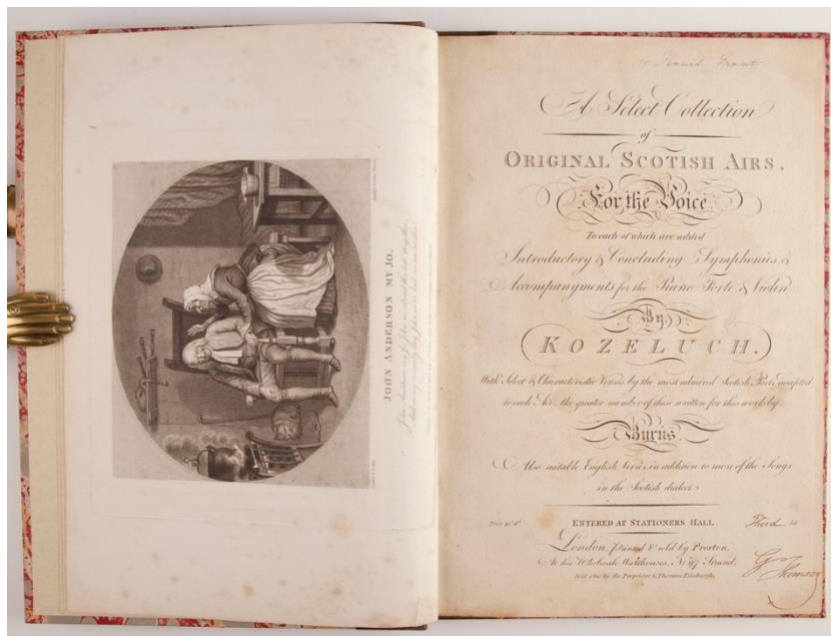 JOHN ANDERSON MY JO.
Grant
A Select Collection
of
ORIGINAL SCOTISH AIRS,
For the Voice
To each of which are added
Introductory & Concluding Symphonies, &
Accompanyments for the Piano Forte & Violin
By
KOZELUCH.
With Select & Characteristic Verses by the most admired Scotish Poets adapted
to each Air, the greater number of them written for this work by
Burns
Also suitable English Verses in addition to most of the Songs
in the Scotish dialect
Price
ENTERED AT STATIONERS HALL.
Third
London, Printed & sold by Preston,
At his Wholesale Warehouses, No. 97 Strand.
Sold also by the Proprietor G. Thomson, Edinburgh.
G Thomson